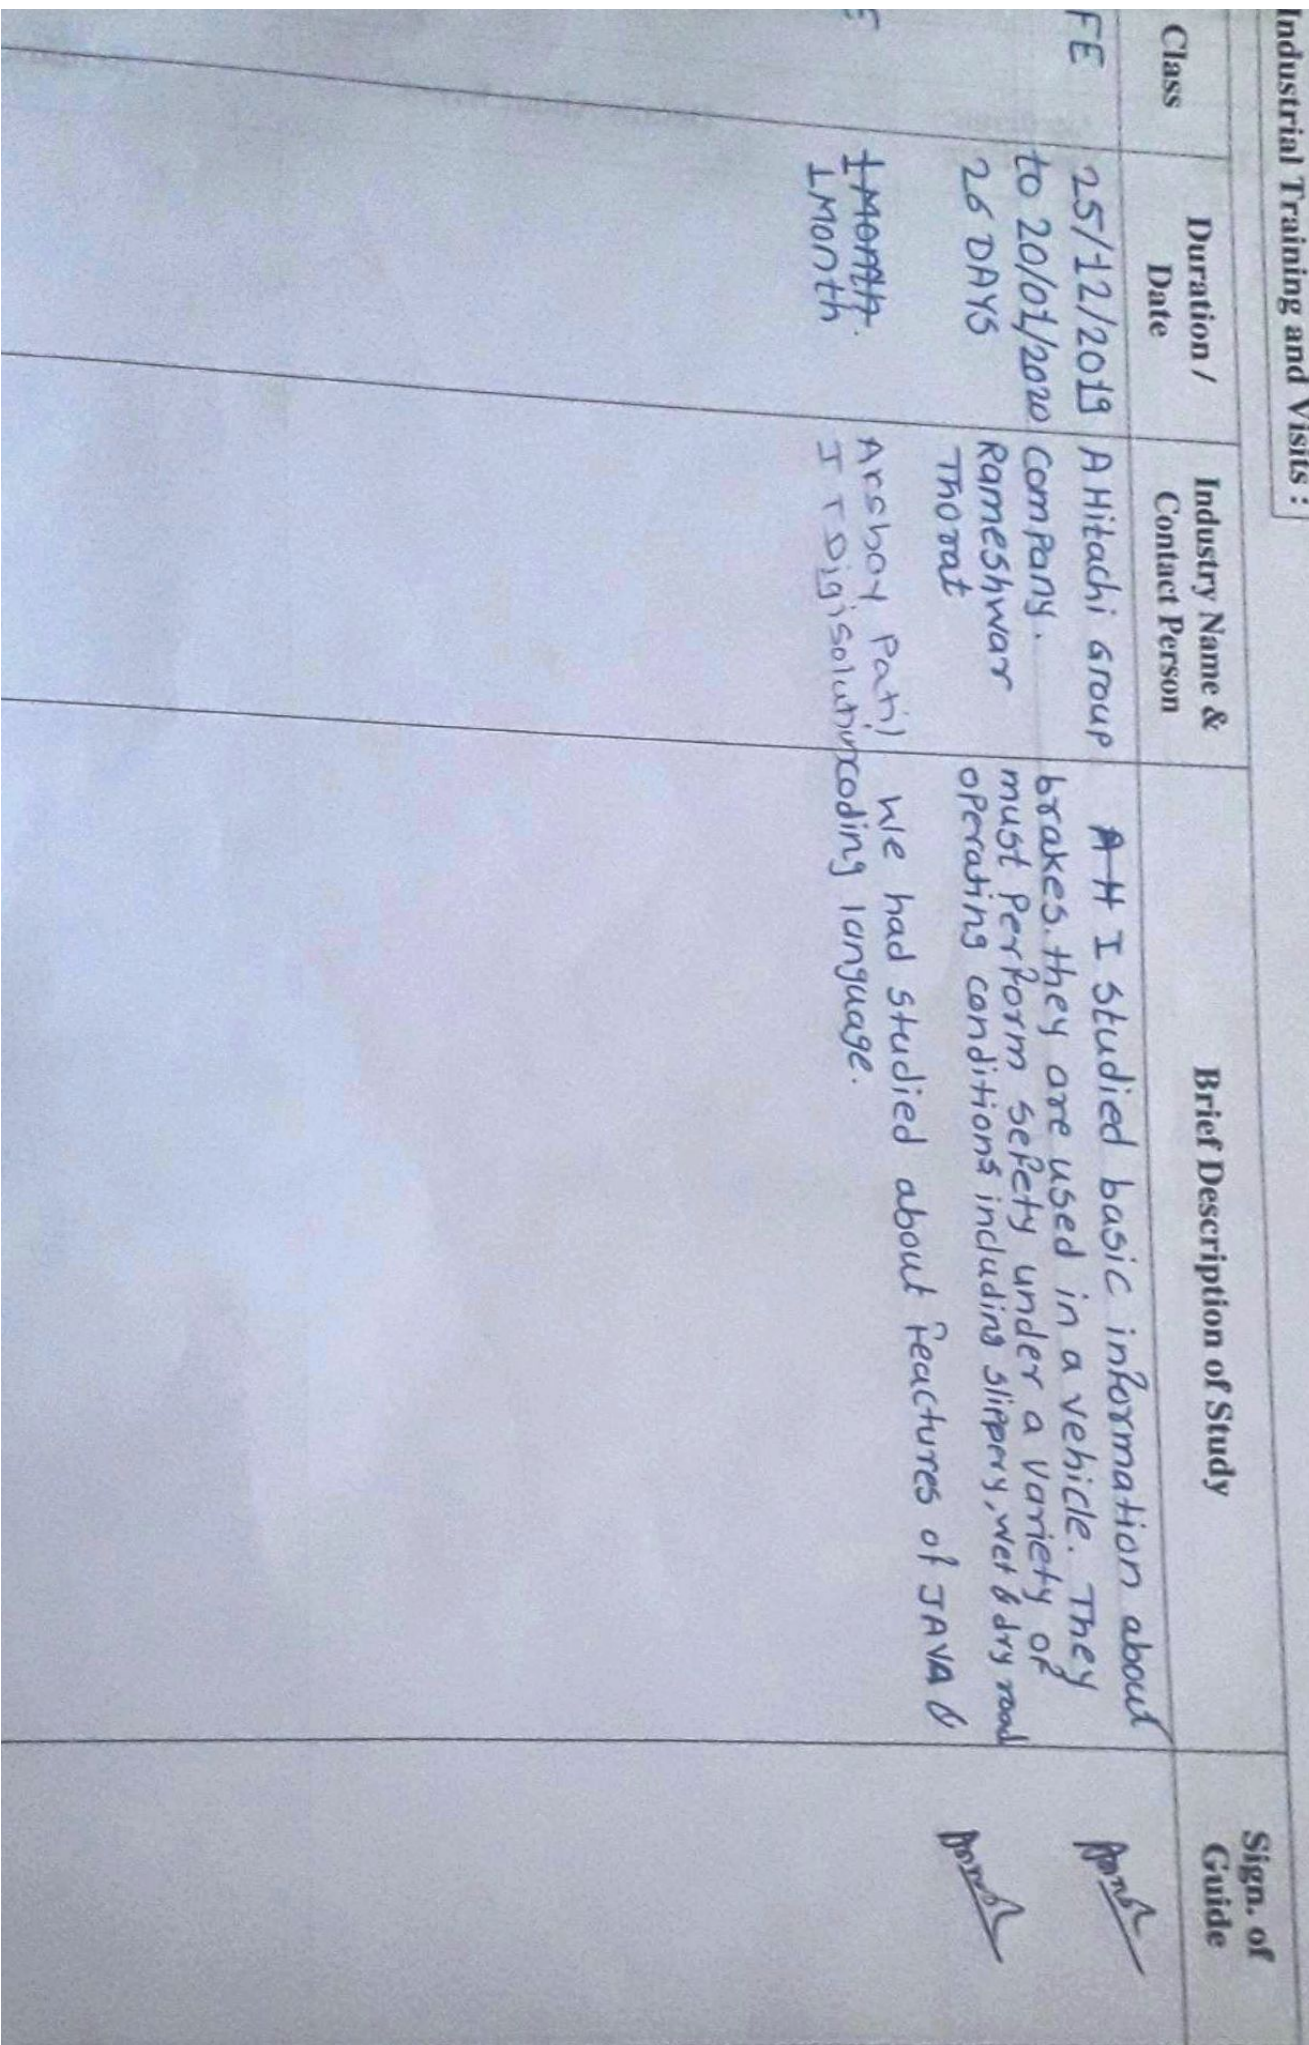 Industrial Training and Visits :
Class
Duration /
Date
Industry Name &
Contact Person
Brief Description of Study
Sign. of
Guide
FE
25/12/2019
to 20/01/2020
26 DAYS
A Hitachi Group
company.
Rameshwar
Thorat
A H I studied basic information about
brakes. they are used in a vehicle. They
must perform sefety under a variety of
operating conditions including slippery, wet & dry road
E
1 Month.
1 Month
Patil
IT Digisolution
We had studied about feactures of JAVA &
coding language.